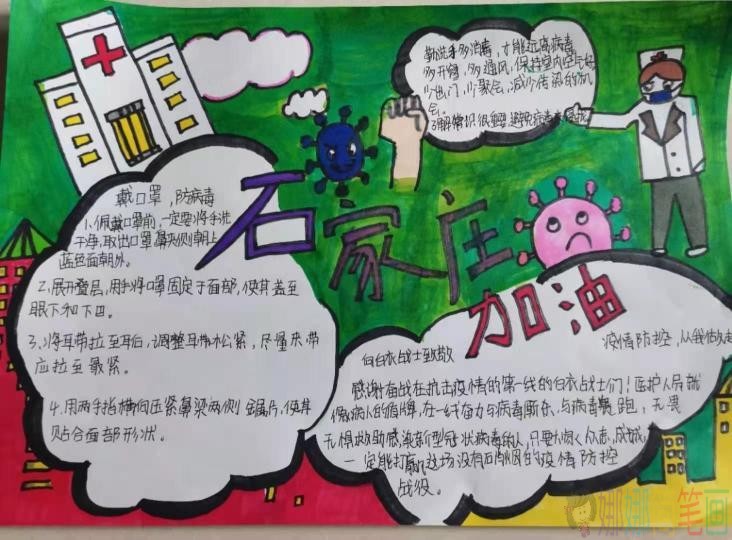 勤洗手多消毒，才能远离病毒
多开窗，多通风，保持室内空气好
少出门，少聚会，减少传染的机
会。
石家庄
加油
戴口罩，防病毒
1、佩戴口罩前，一定要将手洗
干净，取出口罩鼻夹侧朝上
蓝色面朝外。
2、展开叠层，用手将口罩固定于面部，使其盖至
眼下和下巴。
3、将耳带拉至耳后，调整耳带松紧，尽量夹带
应拉至最紧。
4、用两手指横向压紧鼻梁两侧 铝片，使其
贴合面部形状。
疫情防控，从我做起
向白衣战士致敬
感谢奋战在抗击疫情的第一线的白衣战士们！医护人员就
像病人的盾牌，在一线奋力与病毒厮杀、与病魔 跑，无畏
无惧救助感染新型冠状病毒的人，只要 众志成城
一定能打赢这场没有硝烟的疫情防控
战役。
娜娜 笔画